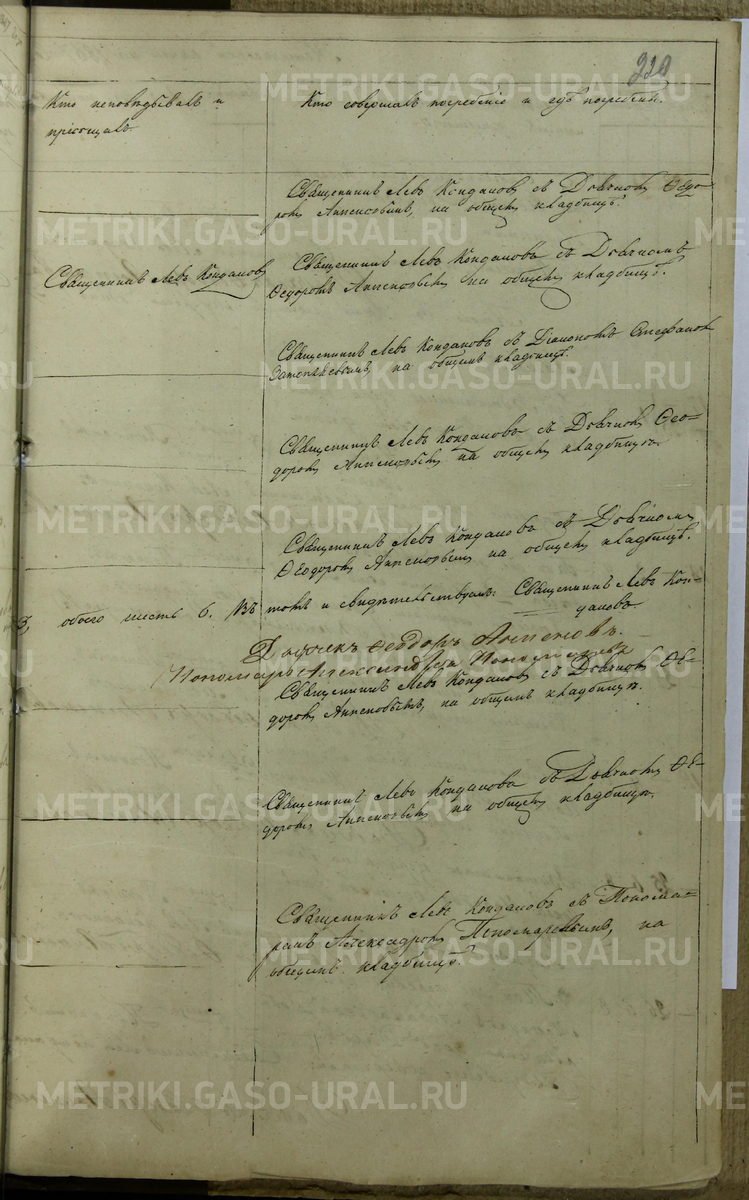 220
Кто исповѣдывалъ и
пріобщалъ.
Кто совершалъ погребеніе и гдѣ погребены.
Священникъ Левъ Кондаковъ съ Дьячкомъ Ѳедо-
ромъ на общемъ кладбищѣ.
Священникъ Левъ Кондаковъ
Священникъ Левъ Кондаковъ съ Дьячкомъ
Ѳедоромъ на общемъ кладбищѣ.
Священникъ Левъ Кондаковъ съ Діакономъ Стефаномъ
на общемъ кладбищѣ.
Священникъ Левъ Кондаковъ съ Дьячкомъ Ѳео-
доромъ на общемъ кладбищѣ.
Священникъ Левъ Кондаковъ съ Дьячкомъ
Ѳеодоромъ на общемъ кладбищѣ.
3, обоего шесть 6. Въ томъ и свидѣтельствуемъ: Священникъ Левъ Кон-
даковъ
Дьячекъ Ѳеодоръ
Пономарь Александръ Пономаревъ
Священникъ Левъ Кондаковъ съ Дьячкомъ Ѳе-
доромъ на общемъ кладбищѣ.
Священникъ Левъ Кондаковъ съ Дьячкомъ Ѳе-
доромъ на общемъ кладбищѣ.
Священникъ Левъ Кондаковъ съ Понома-
ремъ Александромъ Пономаревымъ, на
общемъ кладбищѣ.
METRIKI.GASO-URAL.RU